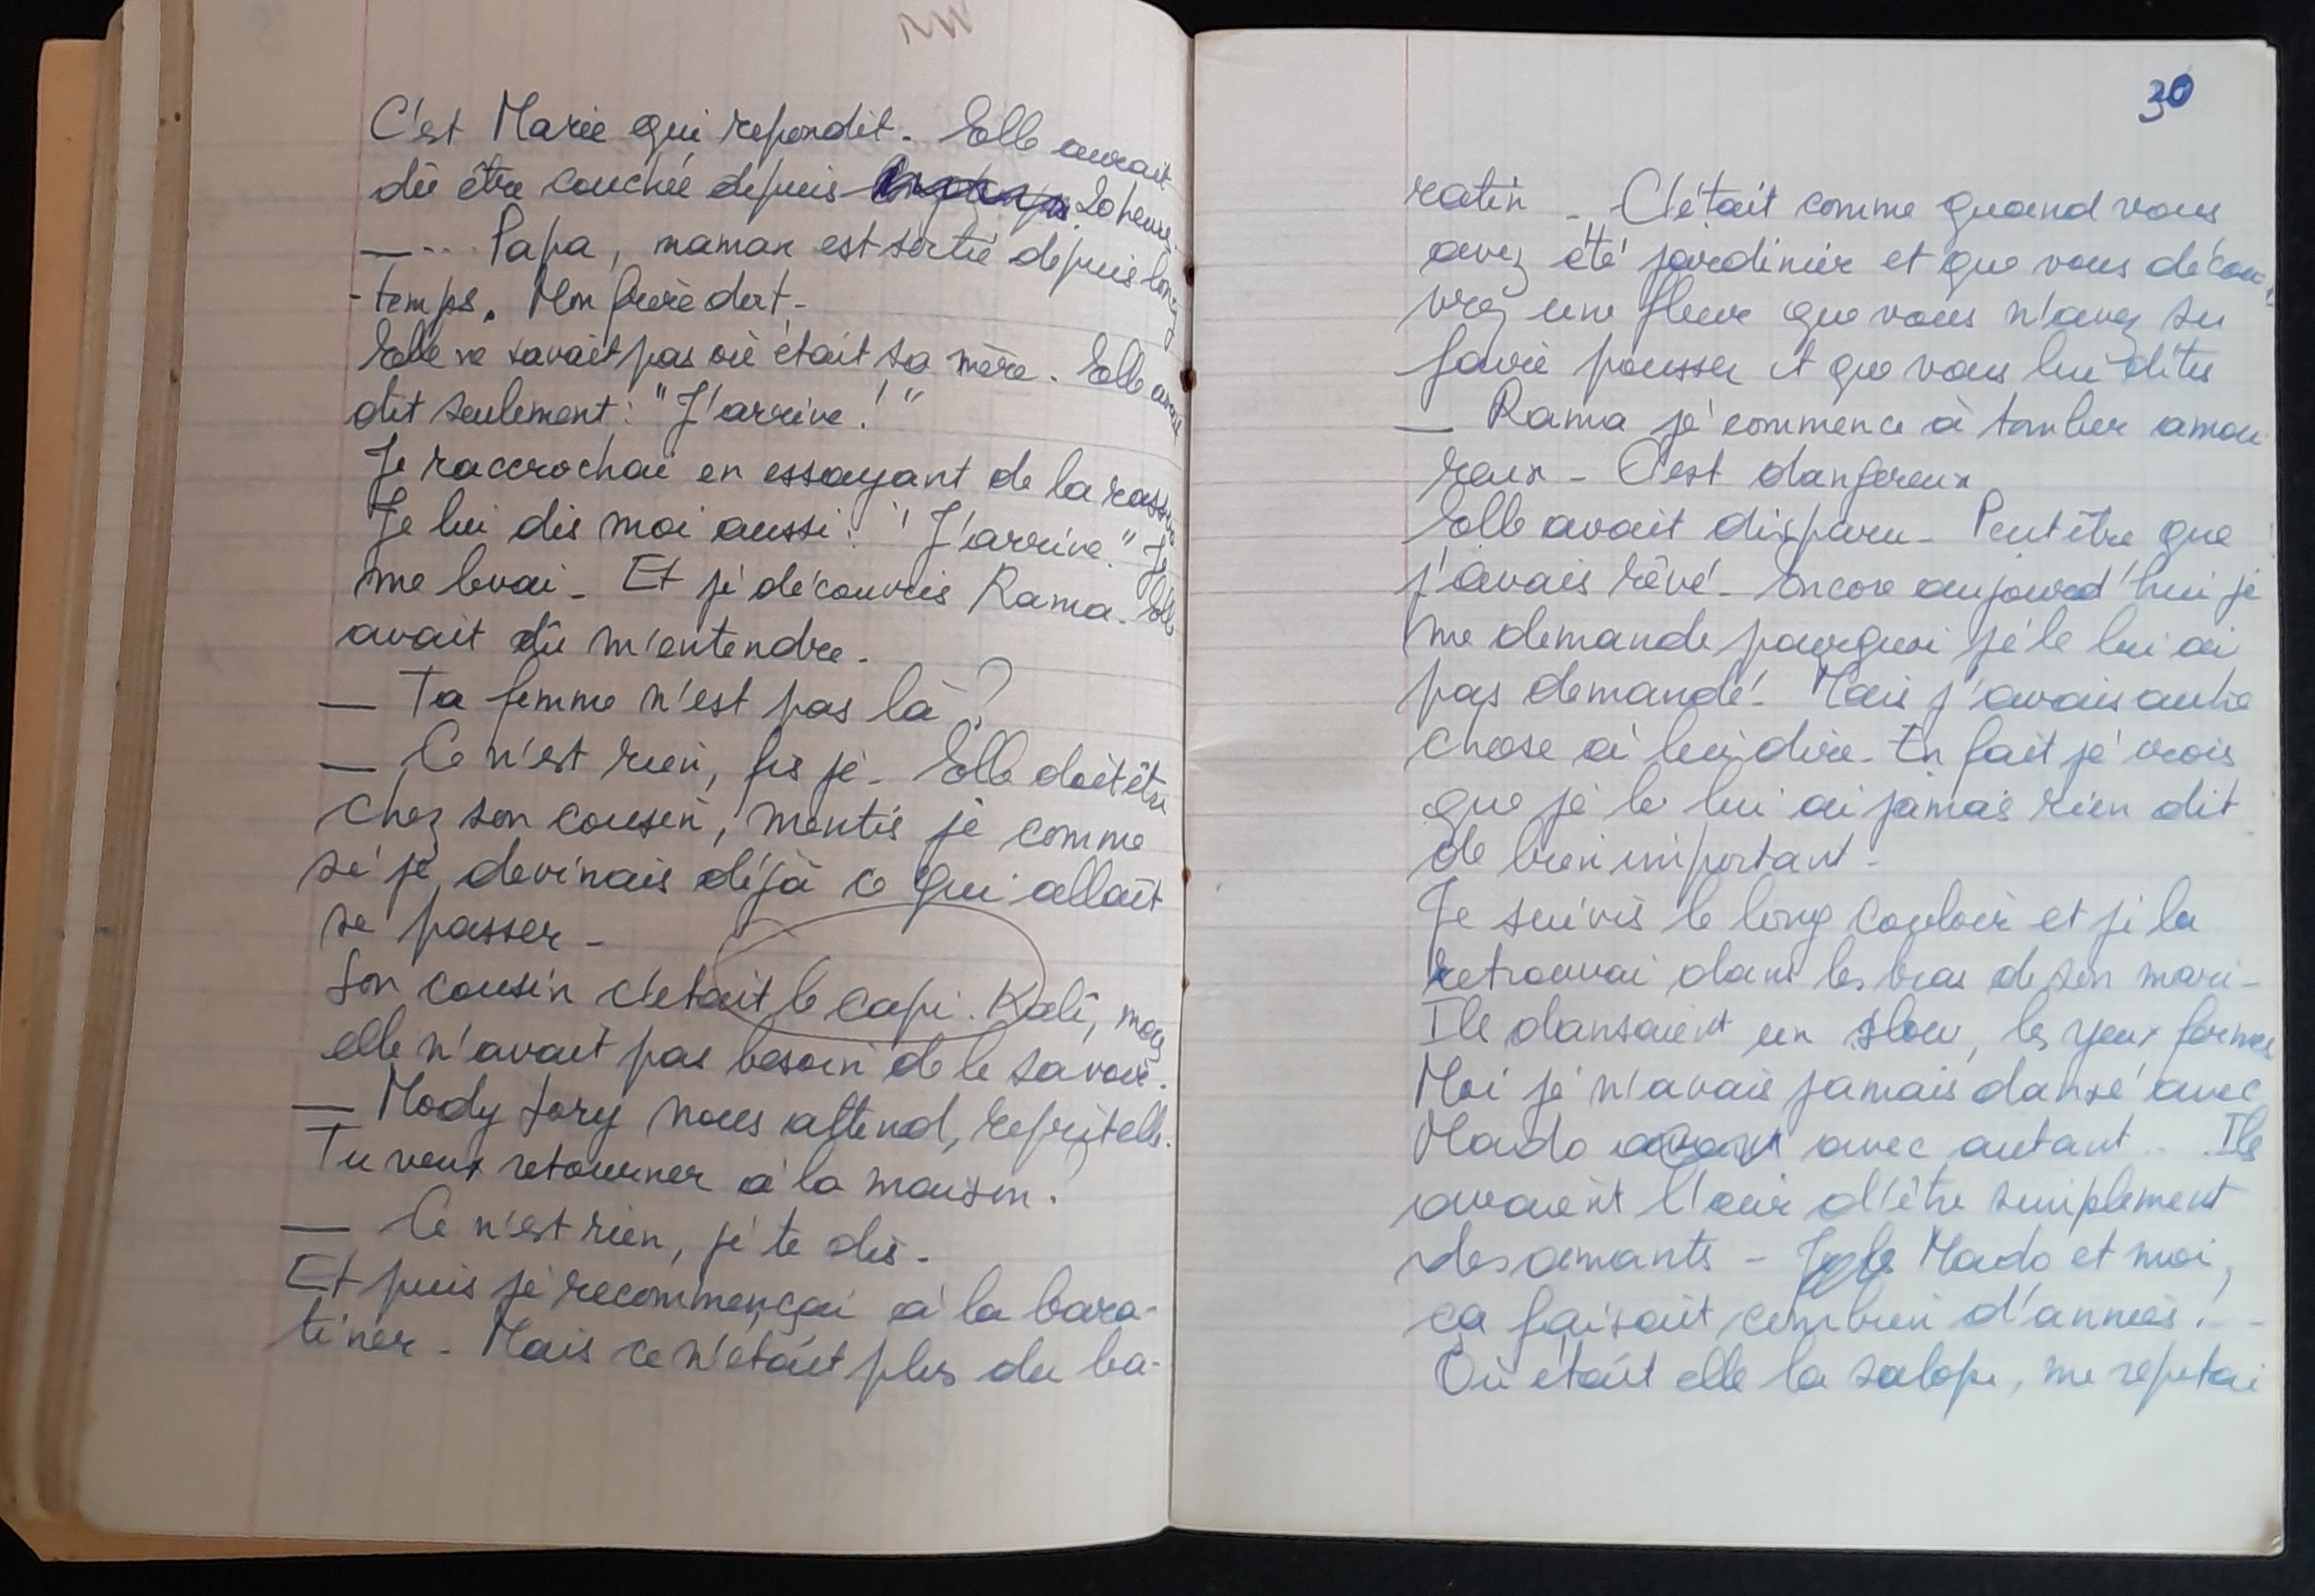 C'est Marie qui repondit. Elle aurait
dû être couchée depuis longtemps 20 heures.
— ... Papa, maman est sortie depuis long
-temps. Mon frère dort.
Elle ne savait pas où était sa mère. Elle avait
dit seulement : "J'arrive !"
Je raccrochai en essayant de la rassurer
Je lui dis moi aussi : "J'arrive." Je
me levai. Et je découvris Rama. Elle
avait dû m'entendre.
— Ta femme n'est pas là ?
— Ce n'est rien, fis je. Elle doit être
chez son cousin, mentis je comme
si je devinais déjà ce qui allait
se passer.
Son cousin c'était le capi. Kali, mais
elle n'avait pas besoin de le savoir.
— Mody Sory nous attend, reprit elle.
Tu veux retourner à la maison ?
— Ce n'est rien, je te dis.
Et puis je recommençai à la bara-
tiner. Mais ce n'était plus du ba-
30
ratin. C'était comme quand vous
avez été jardinier et que vous décou-
vrez une fleur que vous n'avez su
faire pousser et que vous lui dites
— Rama je commence à tomber amou
reux. C'est dangereux
Elle avait disparu. Peut être que
j'avais rêvé. Encore aujourd'hui je
me demande pourquoi je le lui ai
pas demandé. Mais j'avais autre
chose à lui dire. En fait je crois
que je le lui ai jamais rien dit
de bien important.
Je suivis le long couloir et je la
retrouvai dans les bras de son mari.
Ils dansaient un slow, les yeux fermés
Moi je n'avais jamais dansé avec
Mado avec autant... Ils
avaient l'air d'être simplement
des amants. Mado et moi,
ça faisait combien d'années !
Où était elle la salope, me repetai